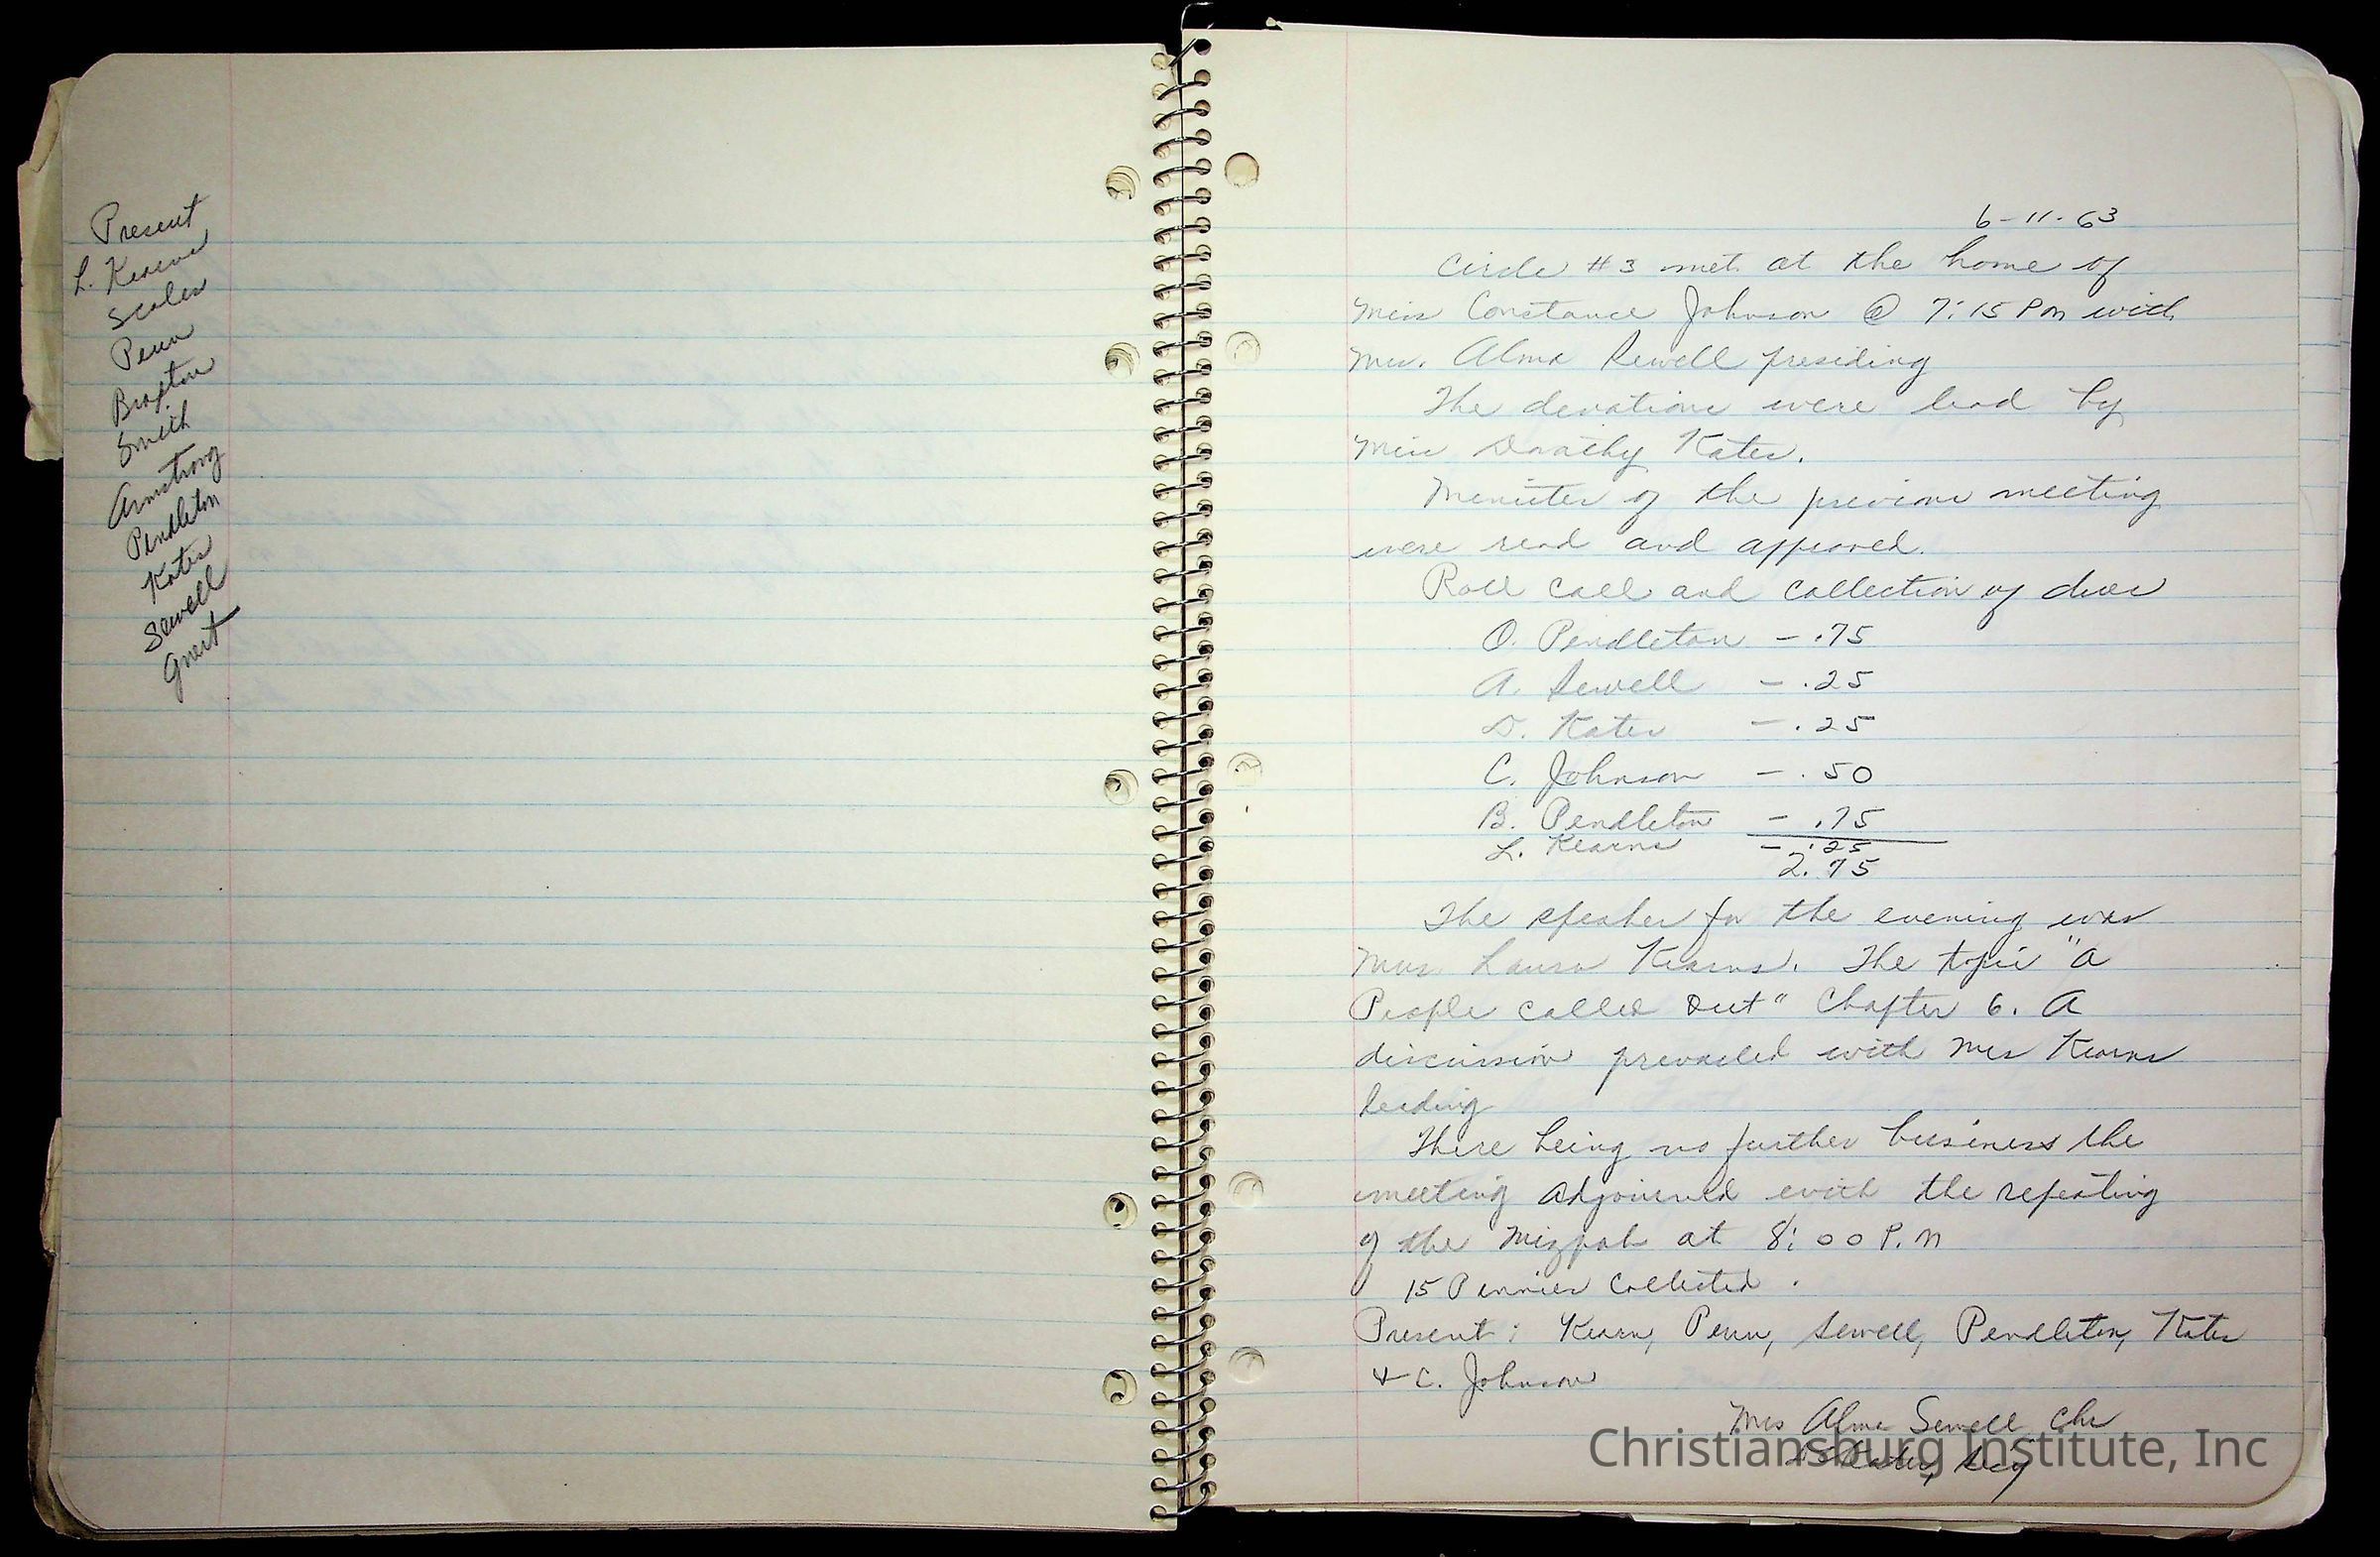 Present
L. Kearns
Scales
Penn
Braxton
Smith
Armstrong
Pendleton
Kates
Sewell
6-11-63
Circle #3 met at the home of
Miss Constance Johnson @ 7:15 Pm with
Mrs. Alma Sewell presiding
The devotions were lead by
Miss Dorothy Kates.
Menutes of the previous meeting
were read and approved.
Roll call and collection of dues
O. Pendleton - .75
A. Sewell - .25
D. Kates - .25
C. Johnson - .50
B. Pendleton - .75
L. Kearns - .25
2.75
The speaker for the evening was
Mrs. Laura Kearns. The topic "A
People called Out" Chapter 6. A
discussion prevailed with Mrs Kearns
leading
There being no further business the
meeting adjourned with the repeating
of the Mizpah at 8:00 P.M
15 Pennies Collected.
Present: Kearn, Penn, Sewell, Pendleton, Kates
+ C. Johnson
Mrs Alma Sewell Chr
Kates, Secy
Christiansburg Institute, Inc